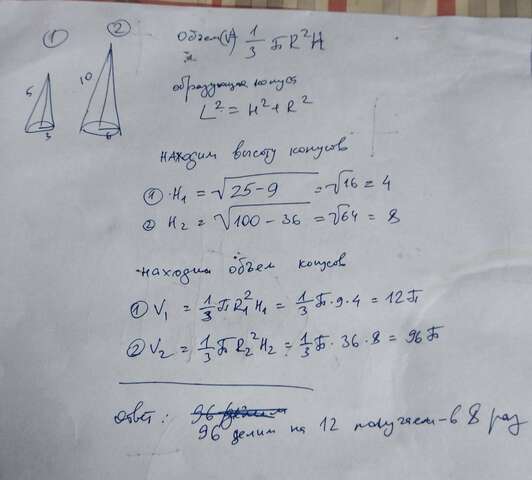 ① ②
Объем (V) 1/3 ПR²H
5 10
3 6
образующая конуса
L² = H² + R²
находим высоту конусов
① H₁ = √25-9 = √16 = 4
② H₂ = √100-36 = √64 = 8
находим объем конусов
① V₁ = 1/3 ПR₁²H₁ = 1/3 П·9·4 = 12П
② V₂ = 1/3 ПR₂²H₂ = 1/3 П·36·8 = 96П
Ответ:
96 делим на 12 получаем - в 8 раз